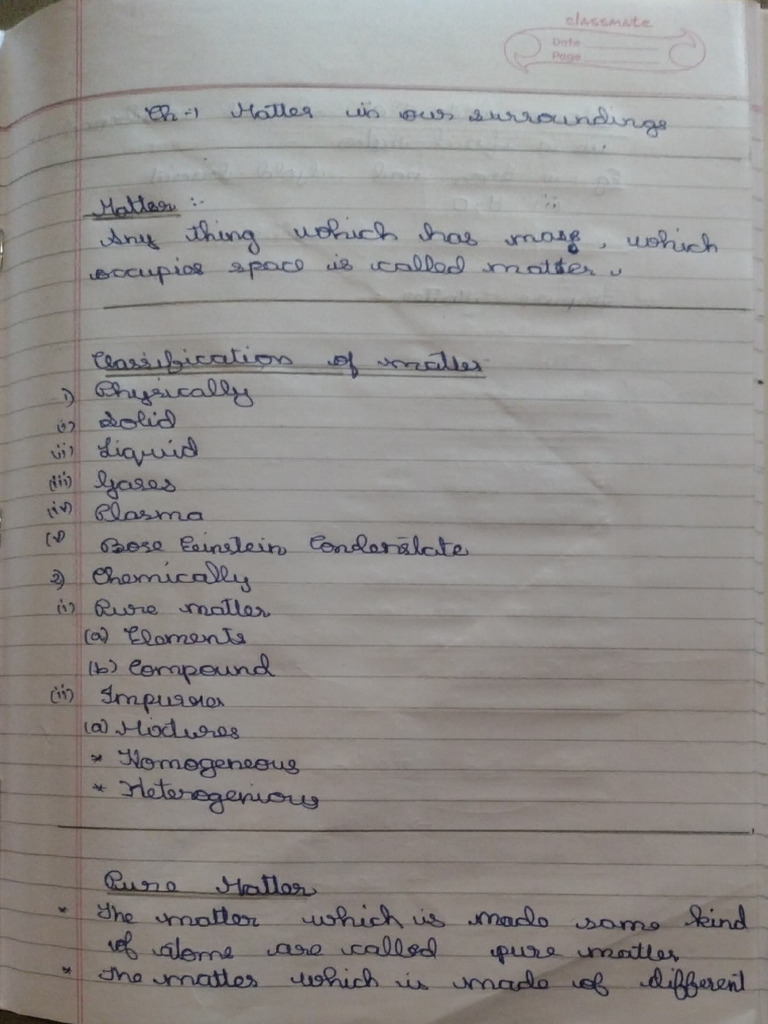 classmate
Date
Page
Ch-1 Matter in our surroundings
Matter :-
Any thing which has mass, which
occupies space is called matter.
Classification of matter
1) Physically
(i) Solid
(ii) Liquid
(iii) Gases
(iv) Plasma
(v) Bose Einstein Condensate
2) Chemically
(i) Pure matter
(a) Elements
(b) Compound
(ii) Impure
(a) Mixtures
* Homogeneous
* Heterogenious
Pure Matter
* The matter which is made same kind
of atoms are called pure matter
* The matter which is made of different